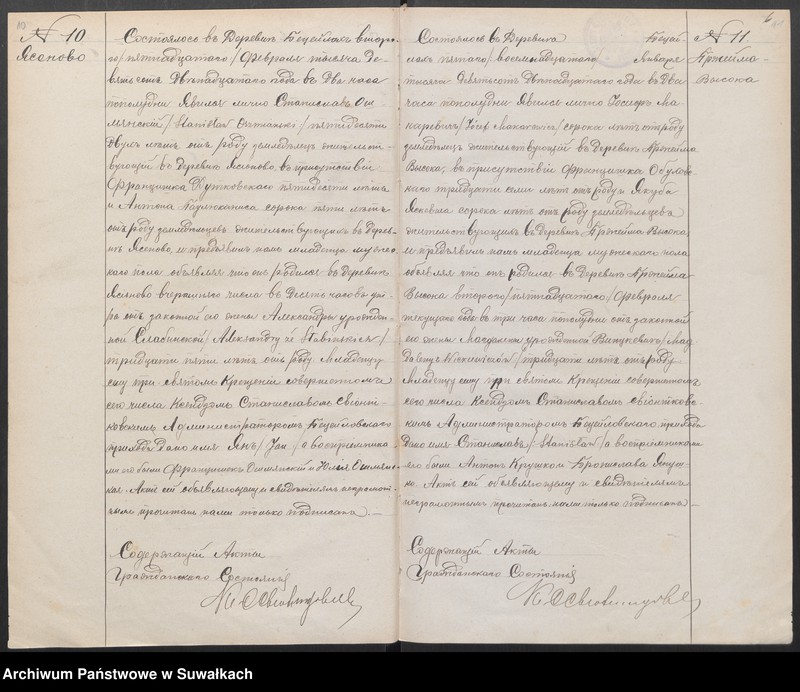 10
№ 10
Ясоново
Состоялось въ Деревнѣ Бецейлахъ второ-
го /пятнадцатаго/ Февраля тысяча де-
вятьсотъ Двѣнадцатаго года въ Два часа
пополудни Явился лично Станиславъ Ош-
мянскій /Stanisław Oszmianski/ пятидесяти
Двухъ лѣтъ отъ роду земледѣлецъ жительст-
вующій въ Деревнѣ Ясоново, въ присутствіи
Францишка пятидесяти лѣтъ
и Антона сорока пяти лѣтъ
отъ роду земледѣльцевъ жительствующихъ въ Дерев-
нѣ Ясоново, и предъявилъ намъ младенца мужес-
каго пола объявляя что онъ родился въ Деревнѣ
Ясоново вчерашняго числа въ Десять часовъ ут-
ра отъ законной его жены Александры урожден-
ной Слабинской /Aleksandry ze Słabinskich/
тридцати пяти лѣтъ отъ роду. Младенцу
сему при святомъ Крещеніи совершенномъ
сего числа Ксендзомъ Станиславомъ
Администраторомъ Бецейловскаго
прихода Дано имя Янъ /Jan/ а воспріемника-
ми его были Францишекъ Ошмянскій и Юлія Ошмянс-
кая. Актъ сей объявляющему и свидѣтелямъ неграмот-
нымъ прочитанъ нами только подписанъ.
Содержащій Акты
Гражданскаго Состоянія
6
№ 11
Кржейма-
Высока
Состоялось въ Деревнѣ Бецей-
лахъ пятаго /восемнадцатаго Января
тысяча Девятьсотъ Двѣнадцатаго года въ Два
часа пополудни Явился лично Іосифъ Ма-
каревичъ /Józef Makarewicz/ сорока лѣтъ отъ роду
земледѣлецъ жительствующій въ Деревнѣ Кржейма
Высока, въ присутствіи Францишка
тридцати семи лѣтъ отъ роду и Якуба
сорока лѣтъ отъ роду земледѣльцевъ
жительствующихъ въ Деревнѣ Кржейма Высока,
и предъявилъ намъ младенца мужескаго пола
объявляя что онъ родился въ Деревнѣ Кржейма
Высока второго /пятнадцатаго/ Февраля
текущаго года въ три часа пополудни отъ законной
его жены Магдалены урожденной /Mag
тридцати лѣтъ отъ роду
Младенцу сему при святомъ Крещеніи совершенномъ
сего числа Ксендзомъ Станиславомъ
Администраторомъ Бецейловскаго прихода
Дано имя Станиславъ /Stanisław/ а воспріемниками
его были Антонъ Бронислава
Актъ сей объявляющему и свидѣтелямъ
неграмотнымъ прочитанъ нами только подписанъ
Содержащій Акты
Гражданскаго Состоянія
Archiwum Państwowe w Suwałkach